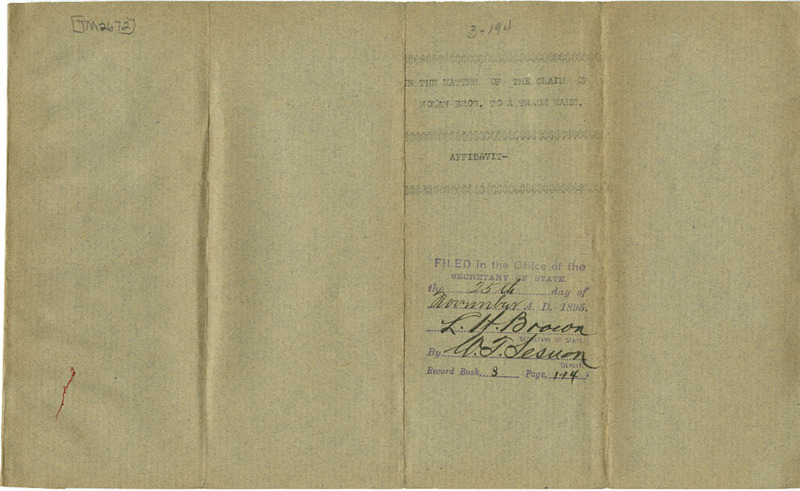 [TM2672]
3-194
IN THE MATTER OF THE CLAIM OF
NOLAN BROS. TO A TRADE MARK.
AFFIDAVIT-
FILED in the Office of the
SECRETARY OF STATE,
the 25th day of
November A. D. 1895,
L. H. Brown
SECRETARY OF STATE.
By W. T.
DEPUTY.
Record Book, 3 Page, 194